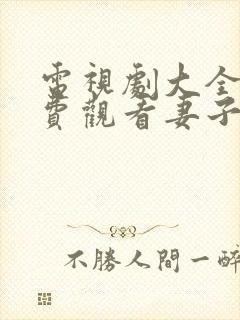 電視劇大全
費觀看妻子
不勝人間一醉